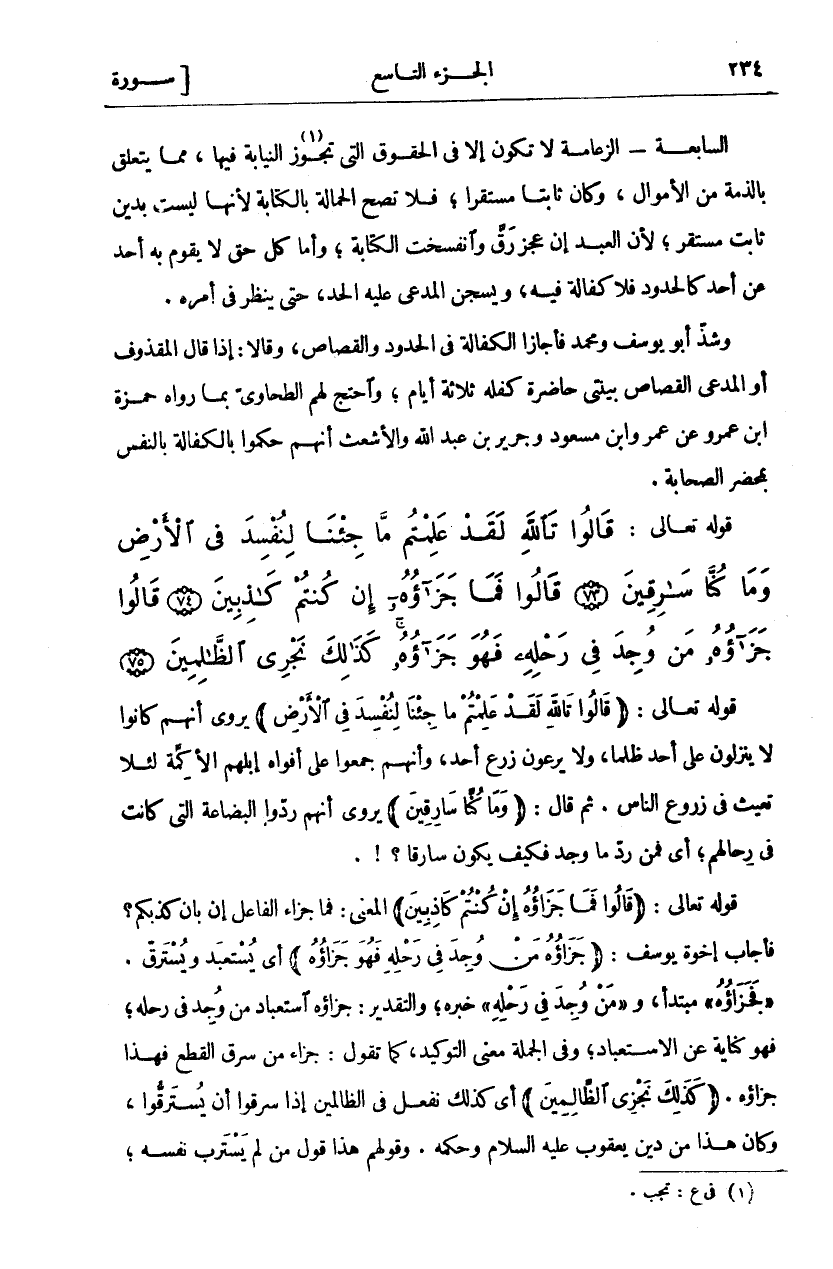 ٢٣٤ الجـزء التـاسع [ ســورة
السابعـة — الزعامـة لا تكون إلا فى الحقـوق التى تجـوز(١) النيابة فيها ، ممـا يتعلق
بالذمة من الأموال ، وكان ثابتـا مستقرا ؛ فـلا تصح الحمالة بالكتابة لأنهـا ليست بدين
ثابت مستقر ؛ لأن العبـد إن عجز رَقَّ وٱنفسخت الكتابة ؛ وأما كل حق لا يقوم به أحد
عن أحد كالحدود فلا كفالة فيـه، ويسجن المدعى عليه الحد، حتى ينظر فى أمره .
وشذّ أبو يوسف ومحمد فأجازا الكفالة فى الحدود والقصاص، وقالا: إذا قال المقذوف
أو المدعى القصاص بينتى حاضرة كفله ثلاثة أيام ؛ وٱحتج لهم الطحاوىّ بمـا رواه حمـزة
ابن عمرو عن عمر وابن مسعود وجرير بن عبد الله والأشعث أنهـم حكموا بالكفالة بالنفس
بمحضر الصحابة .
قوله تعـالى : قَالُوا تَٱللَّهِ لَقَدْ عَلِمْتُم مَّا جِئْنَا لِنُفْسِدَ فِى ٱلْأَرْضِ
وَمَا كُنَّا سَـٰرِقِينَ ﴿٧٣﴾ قَالُوا فَمَا جَزَـٰٓؤُهُۥٓ إِن كُنتُمْ كَـٰذِبِينَ ﴿٧٤﴾ قَالُوا
جَزَـٰٓؤُهُۥ مَن وُجِدَ فِى رَحْلِهِۦ فَهُوَ جَزَـٰٓؤُهُۥ ۚ كَذَٰلِكَ نَجْزِى ٱلظَّـٰلِمِينَ ﴿٧٥﴾
قوله تعـالى : ﴿ قَالُوا تَاللهِ لَقَدْ عَلِمْتُمْ ما جِئْنَا لِنُفْسِدَ فِى ٱلْأَرْضِ ﴾ يروى أنهـم كانوا
لا ينزلون على أحد ظلما، ولا يرعون زرع أحد، وأنهـم جمعوا على أفواه إبلهم الأكِمَّة لئـلا
تعيث فى زروع الناس . ثم قال : ﴿ وَمَا كُنَّا سَارِقِينَ ﴾ يروى أنهم ردّوا البضاعة التى كانت
فى رحالهم؛ أى فمن ردّ ما وجد فكيف يكون سارقا ؟ ! .
قوله تعالى : ﴿قَالُوا فَمَـا جَزَاؤُهُ إِنْ كُنْتُمْ كَاذِبِينَ﴾ المعنى: فما جزاء الفاعل إن بان كذبكم؟
فأجاب إخوة يوسف : ﴿ جَزَاؤُهُ مَنْ وُجِدَ فِى رَحْلِهِ فَهُوَ جَزَاؤُهُ ﴾ أى يُسْتعبَد ويُسْتَرقّ .
«فَجَزَاؤُهُ» مبتدأ، و «مَنْ وُجِدَ فِى رَحْلِهِ» خبره؛ والتقدير : جزاؤه ٱستعباد من وُجِد فى رحله؛
فهو كناية عن الاسـتعباد؛ وفى الجملة معنى التوكيد، كما تقول : جزاء من سرق القطع فهـذا
جزاؤه . ﴿ كَذَلِكَ نَجْزِى ٱلظَّالِمِينَ ﴾ أى كذلك نفعـل فى الظالمين إذا سرقوا أن يُسـتَرَقُّوا ،
وكان هـذا من دين يعقوب عليه السلام وحكمه . وقولهم هذا قول من لم يَسْتَرِب نفسـه ؛
(١) فى ع : تجب .